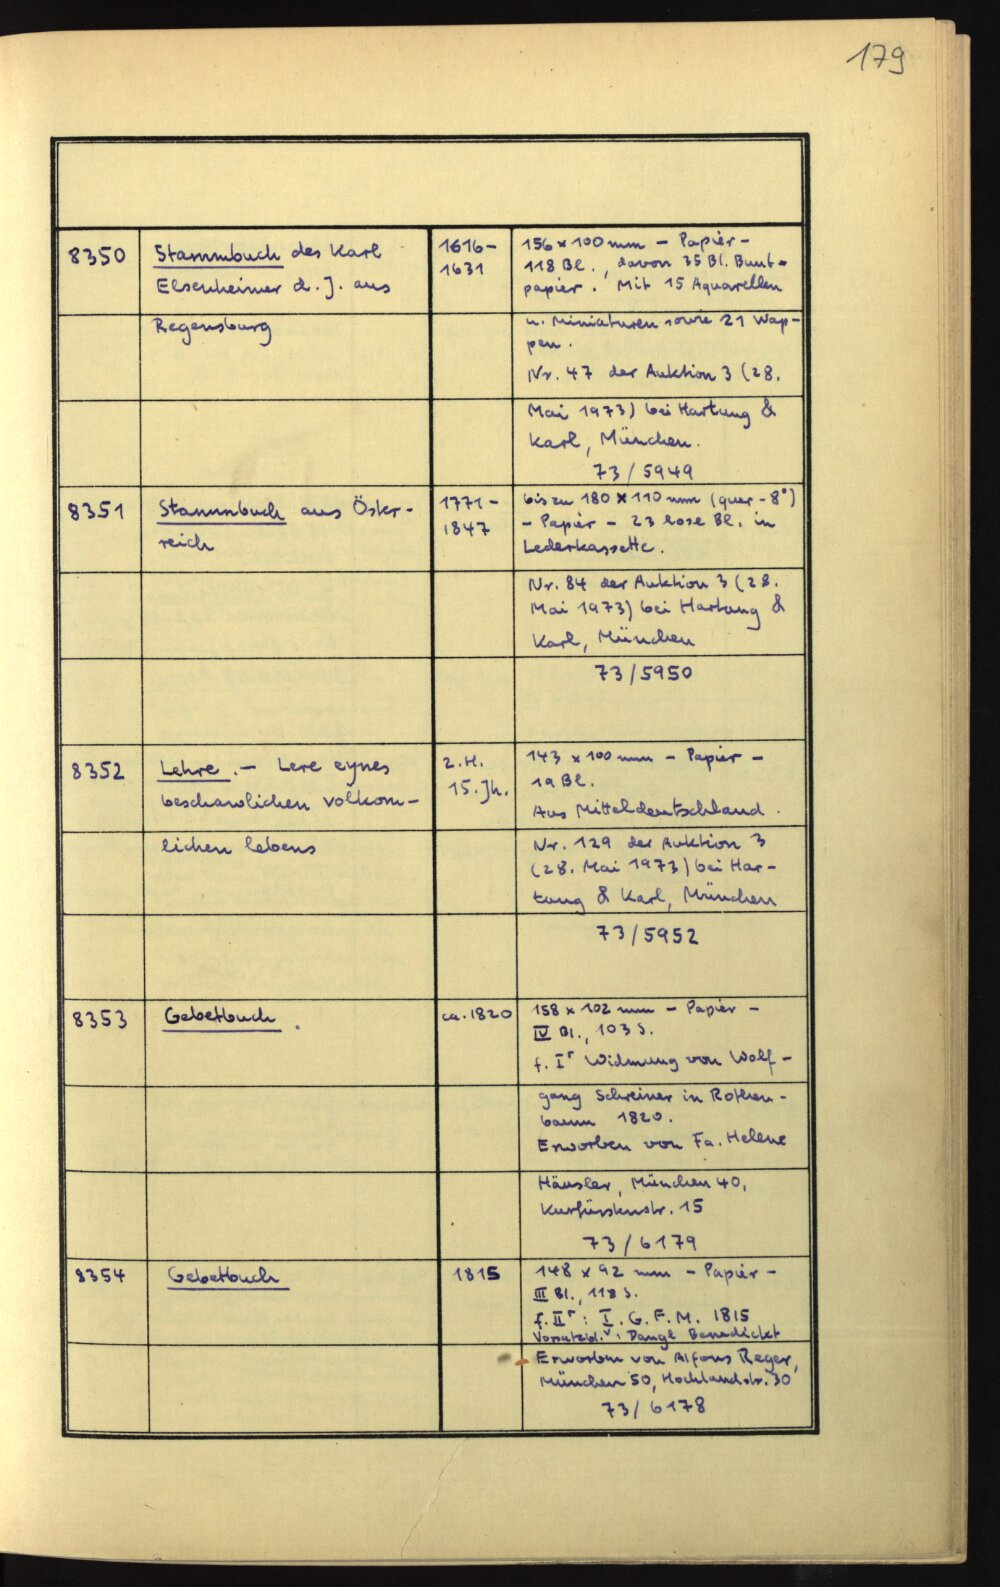 179
8350
Stammbuch des Karl
Elsenheimer d. J. aus
Regensburg
1616-
1631
156 x 100 mm - Papier -
118 Bl., davon 35 Bl. Bunt-
papier. Mit 15 Aquarellen
u. Miniaturen sowie 21 Wap-
pen.
Nr. 47 der Auktion 3 (28.
Mai 1973) bei Hartung &
Karl, München.
73/5949
8351
Stammbuch aus Öster-
reich
1771-
1847
bis zu 180 x 110 mm (quer-8°)
- Papier - 23 lose Bl. in
Lederkassette.
Nr. 84 der Auktion 3 (28.
Mai 1973) bei Hartung &
Karl, München
73/5950
8352
Lehre.- Lere eynes
beschawlichen volkom-
lichen lebens
2. H.
15. Jh.
143 x 100 mm - Papier -
19 Bl.
Aus Mitteldeutschland.
Nr. 129 der Auktion 3
(28. Mai 1973) bei Har-
tung & Karl, München
73/5952
8353
Gebetbuch.
ca. 1820
158 x 102 mm - Papier -
IV Bl., 103 S.
f. Iʳ Widmung von Wolf-
gang Schreiner in Rothen-
baum 1820.
Erworben von Fa. Helene
Häusler, München 40,
Kurfürstenstr. 15
73/6179
8354
Gebetbuch
1815
148 x 92 mm - Papier -
III Bl., 118 S.
f. IIʳ: I. G. F. M. 1815
Vorsatzbl.ᵛ: Dangl Benedickt
Erworben von Alfons Reger,
München 50, Hochlandstr. 30
73/6178